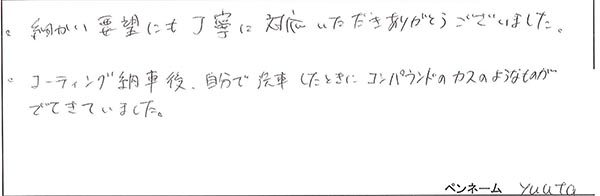 。細かい要望にも丁寧に対応いただきありがとうございました。
。コーティング納車後、自分で洗車したときにコンパウンドのカスのようなものが
でてきていました。
ペンネーム yuuta